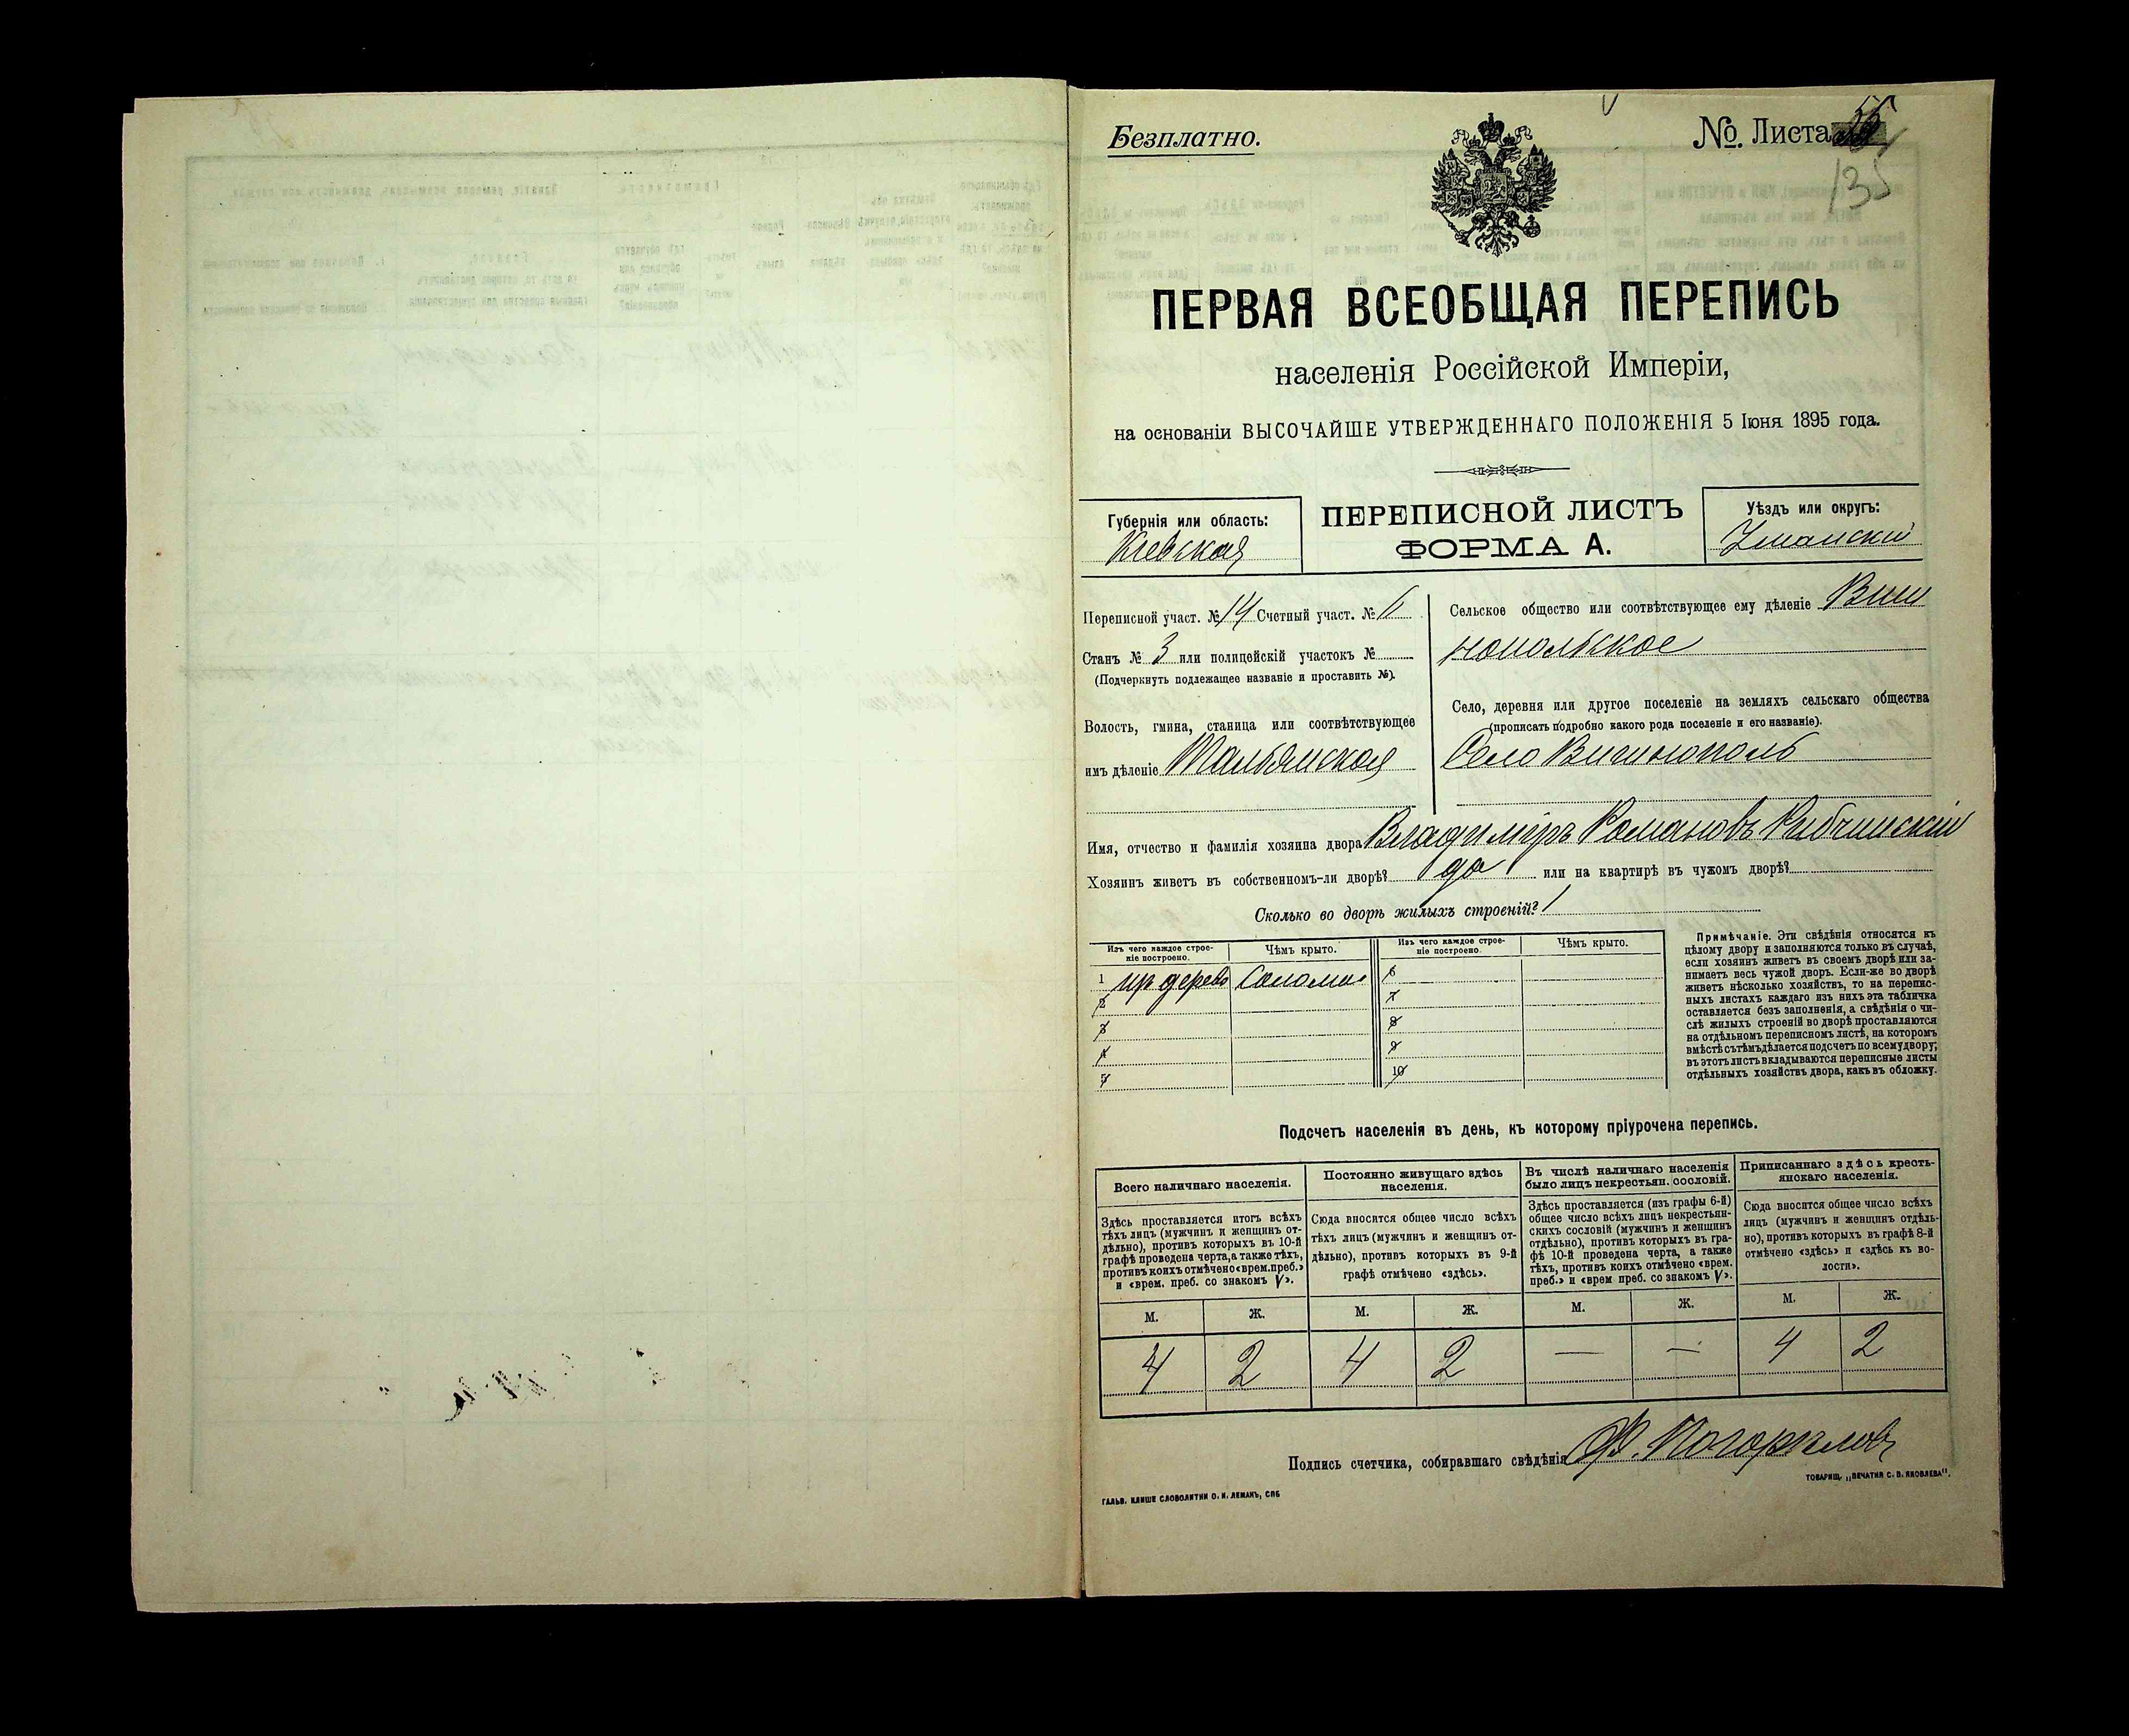 Безплатно.
№ Листа 55
135
ПЕРВАЯ ВСЕОБЩАЯ ПЕРЕПИСЬ
населенія Россійской Имперіи,
на основаніи ВЫСОЧАЙШЕ УТВЕРЖДЕННАГО ПОЛОЖЕНІЯ 5 Іюня 1895 года.
Губернія или область:
Кіевская
ПЕРЕПИСНОЙ ЛИСТЪ
ФОРМА А.
Уѣздъ или округъ:
Уманскій
Переписной участ. № 14 Счетный участ. №
Станъ № 3 или полицейскій участокъ №
(Подчеркнуть подлежащее названіе и проставить №).
Волость, гмина, станица или соотвѣтствующее
имъ дѣленіе Тальянская
Сельское общество или соотвѣтствующее ему дѣленіе Виш
нопольское
Село, деревня или другое поселеніе на земляхъ сельскаго общества
(прописать подробно какого рода поселеніе и его названіе).
Село Вишнополь
Имя, отчество и фамилія хозяина двора Владиміръ Романовъ Рибчинскій
Хозяинъ живетъ въ собственномъ-ли дворѣ? да или на квартирѣ въ чужомъ дворѣ?
Сколько во дворѣ жилыхъ строеній? 1
Изъ чего каждое строе-
ніе построено.
Чѣмъ крыто.
Изъ чего каждое строе-
ніе построено.
Чѣмъ крыто.
1 дерева Солома 6
2 7
3 8
4 9
5 10
Примѣчаніе. Эти свѣдѣнія относятся къ
цѣлому двору и заполняются только въ случаѣ,
если хозяинъ живетъ въ своемъ дворѣ или за-
нимаетъ весь чужой дворъ. Если-же во дворѣ
живетъ нѣсколько хозяйствъ, то на перепис-
ныхъ листахъ каждаго изъ нихъ эта табличка
оставляется безъ заполненія, а свѣдѣнія о чи-
слѣ жилыхъ строеній во дворѣ проставляются
на отдѣльномъ переписномъ листѣ, на которомъ
вмѣстѣ съ тѣмъ дѣлается подсчетъ по всему двору;
въ этотъ листъ вкладываются переписные листы
отдѣльныхъ хозяйствъ двора, какъ въ обложку.
Подсчетъ населенія въ день, къ которому пріурочена перепись.
Всего наличнаго населенія.
Здѣсь проставляется итогъ всѣхъ
тѣхъ лицъ (мужчинъ и женщинъ от-
дѣльно), противъ которыхъ въ 10-й
графѣ проведена черта, а также тѣхъ,
противъ коихъ отмѣчено «врем. преб.»
и «врем. преб. со знакомъ V».
Постоянно живущаго здѣсь
населенія.
Сюда вносится общее число всѣхъ
тѣхъ лицъ (мужчинъ и женщинъ от-
дѣльно), противъ которыхъ въ 9-й
графѣ отмѣчено «здѣсь».
Въ числѣ наличнаго населенія
было лицъ некрестьян. сословій.
Здѣсь проставляется (изъ графы 6-й)
общее число всѣхъ лицъ некрестьян-
скихъ сословій (мужчинъ и женщинъ
отдѣльно), противъ которыхъ въ гра-
фѣ 10-й проведена черта, а также
тѣхъ, противъ коихъ отмѣчено «врем.
преб.» и «врем преб. со знакомъ V».
Приписаннаго здѣсь кресть-
янскаго населенія.
Сюда вносится общее число всѣхъ
лицъ (мужчинъ и женщинъ отдѣль-
но), противъ которыхъ въ графѣ 8-й
отмѣчено «здѣсь» и «здѣсь къ во-
лости».
М. Ж. М. Ж. М. Ж. М. Ж.
4 2 4 2 — — 4 2
Подпись счетчика, собиравшаго свѣдѣнія Ф. Погорѣловъ
ГАЛЬВ. КЛИШЕ СЛОВОЛИТНИ О. И. ЛЕМАНЪ, СПБ
ТОВАРИЩ. „ПЕЧАТНЯ С. П. ЯКОВЛЕВА".